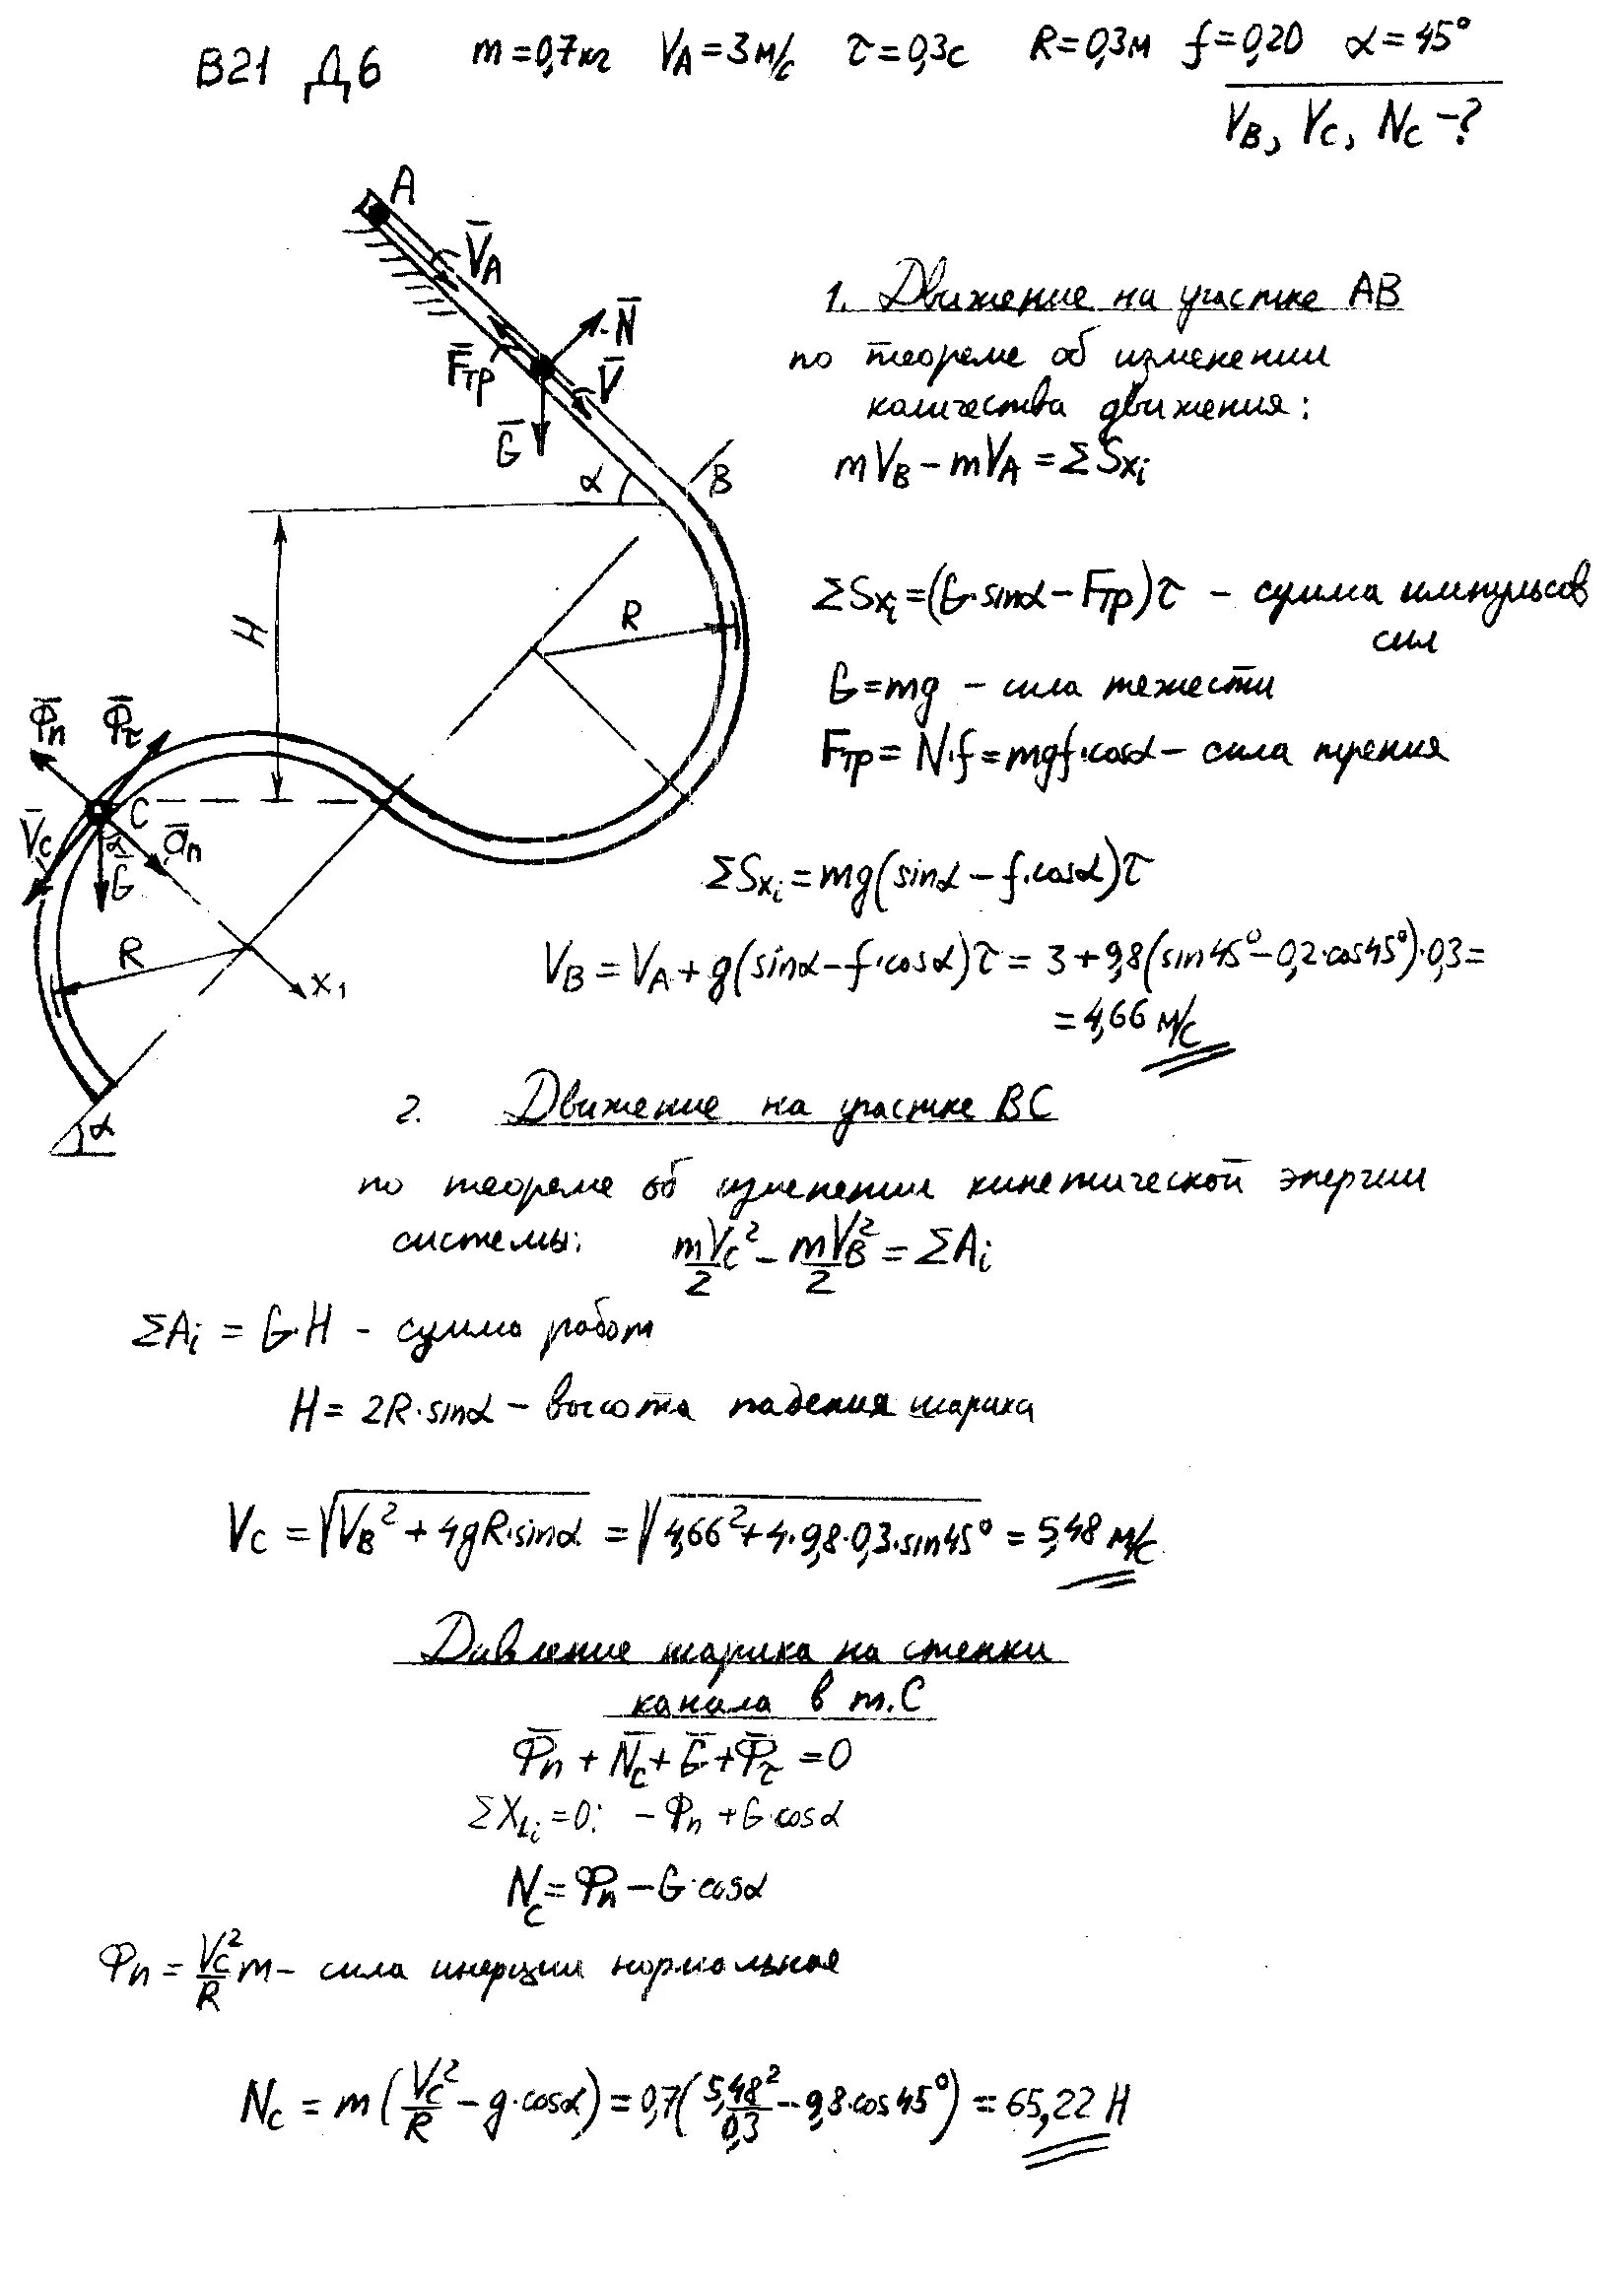 В21 Д6 m=0,7кг V_A=3м/с τ=0,3с R=0,3м f=0,20 α=45°
V_B, V_C, N_C -?
A
V̄_A
N̄
F̄тр
V̄
Ḡ
α
B
H
R
Φ̄n Φ̄τ
V̄c
C
ān
α
Ḡ
R
x₁
α
1. Движение на участке АВ
по теореме об изменении
количества движения:
mV_B - mV_A = ΣSxi
ΣSxi = (G·sinα - Fтр)τ - сумма импульсов
сил
G=mg - сила тяжести
Fтр = N·f = mgf·cosα - сила трения
ΣSxi = mg(sinα - f·cosα)τ
V_B = V_A + g(sinα - f·cosα)τ = 3+9,8(sin45° - 0,2·cos45°)·0,3=
= 4,66 м/с
2. Движение на участке ВС
по теореме об изменении кинетической энергии
системы: mVc²/2 - mV_B²/2 = ΣAi
ΣAi = G·H - сумма работ
H = 2R·sinα - высота падения шарика
Vc = √(V_B² + 4gR·sinα) = √(4,66² + 4·9,8·0,3·sin45°) = 5,48 м/с
Давление шарика на стенки
канала в т.С
Φ̄n + N̄c + Ḡ + Φ̄τ = 0
ΣX₁i = 0: -Φn + G·cosα
Nc = Φn - G·cosα
Φn = Vc²/R m - сила инерции нормальная
Nc = m(Vc²/R - g·cosα) = 0,7(5,48²/0,3 - 9,8·cos45°) = 65,22 Н